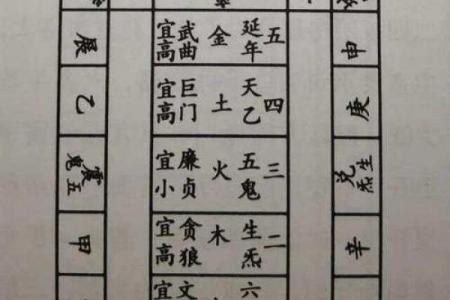 辰
五 延年 金 武曲 宜高
申
乙
四 天乙 土 巨门 宜高
庚
震 五鬼
三 五鬼 火 廉贞 宜小
兑 生炁
甲
二 生炁 木 贪狼 宜高
辛
六 文 宜